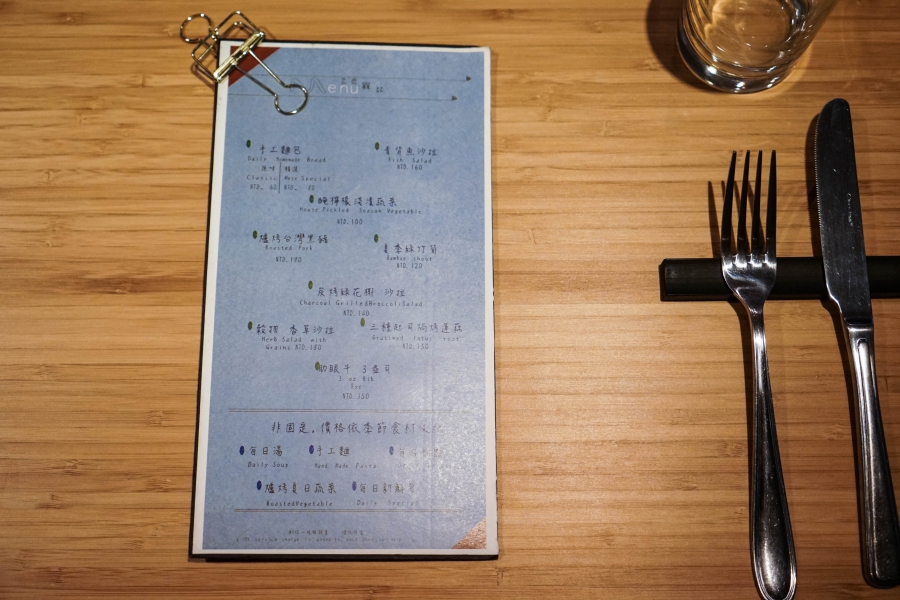 Menu
手工麵包
Daily Homemade Bread
原味
Classic
NTD. 60
NTD.
青背魚沙拉
Fish Salad
NTD.160
醃檸檬淺漬蔬菜
House Pickled Season Vegetable
NTD.100
爐烤台灣黑豬
Roasted Pork
NTD.190
夏季綠竹筍
Bamboo shoot
NTD.120
炭烤綠花椰 沙拉
Charcoal Grilled Brocoli Salad
NTD.140
穀物 香草沙拉
Herb Salad with
Grains NTD.180
三種起司焗烤蓮藕
Gratined lotus root
NTD.150
肋眼牛 三
Rib
NTD.350
非固定,價格依季節食材
每日湯
Daily Soup
手工麵
Hand Made Pasta
爐烤夏日蔬菜
Roasted Vegetable
每日新鮮
Daily Special